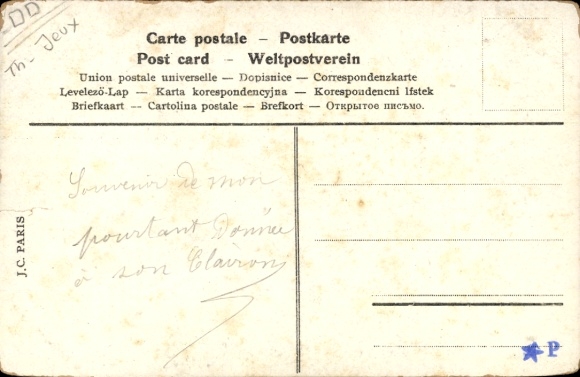 DD
Th - Jeux
Carte postale – Postkarte
Post card – Weltpostverein
Union postale universelle — Dopisnice — Correspondenzkarte
Levelező-Lap — Karta korespondencyjna — Korespoudencni lfstek
Briefkaart -- Cartolina postale — Brefkort — Открытое письмо.
J.C. PARIS
Souvenir de mon
pourtant Donnée
à son Clairon
P